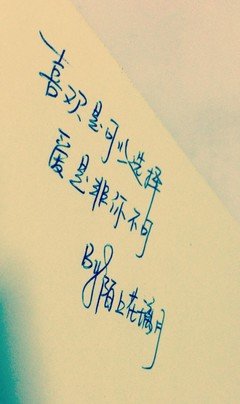 喜欢是可以选择
爱是非你不可
By陌上花漓月